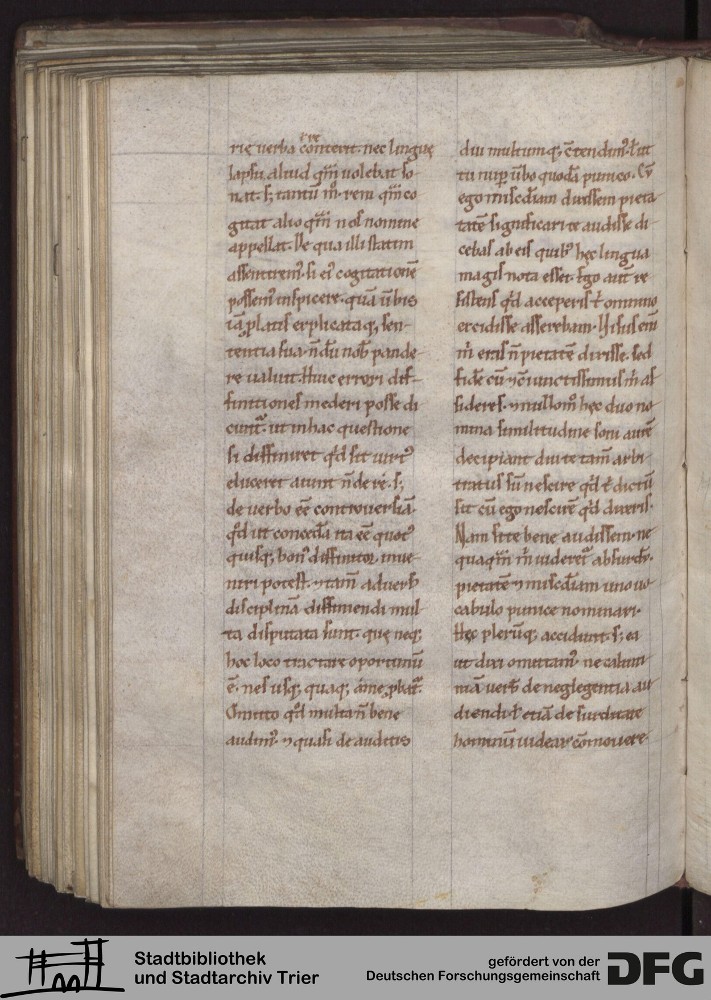 rię uerba c̄tererit. nec linguę
lapsu aliud qm̄ uolebat so
nat. s; tantū m̊ rem qm̄ co
gitat alio qm̄ nos nomine
appellat. De qua illi statim
assentirem᷒. si ei᷒ cogitationē
possem᷒ inspicere. quā ūbis
iā platis explicataq; sen
tentia sua n̄dū nob̄ pande
re ualuit. Huic errori dif
finitiones mederi posse di
cunt᷒. ut in hac questione
si diffiniret qd̄ sit uirt᷒
eluceret aiunt n̄ de re. s;
de uerbo eē controuersiā.
qd̄ ut concedā ita eē quot᷒
quisq; bon᷒ diffinitor inue
niri potest. ⁊ tam̄ aduersū
disciplinā diffiniendi mul
ta disputata sunt. quę neq;
hoc loco tractare oportunū
ē. nec usq; quaq; a me ꝓbat᷒.
Omitto qd̄ multa n̄ bene
audim᷒. ⁊ quasi de auditis
diu multumq; c̄tendim᷒. Vt
tu nup̄ ūbo quodā punico. Cū
ego misc̄diam dixissem pieta
tatē significari te audisse di
cebas ab eis quib᷒ hęc lingua
magis nota esset. Ego aut̄ re
sistens qd̄ acceperis t̄ omnino
excidisse asserebam. Visus eni
m̄ eras n̄ pietatē dixisse. sed
fidē cū ⁊ c̄iunctissimus m̄ as
sideres. ⁊ nullom̊ hęc duo no
mina similitudine soni aurē
decipiant diu te tam̄ arbi
tratus sū nescire qd̄ t̄ dictū
sit cū ego nescirē qd̄ dixeris.
Nam si te bene audissem. ne
quaqm̄ m̄ uideret᷒ absurdū.
pietatē ⁊ misc̄diam uno uo
cabulo punice nominari.
Hęc plerūq; accidunt. s; ea
ut dixi omittam᷒. ne calum
niā uerb᷒ de neglegentia au
diendi. t̄ etiā de surditate
hominū uidear cōmouere.
Stadtbibliothek
und Stadtarchiv Trier
gefördert von der
Deutschen Forschungsgemeinschaft
DFG